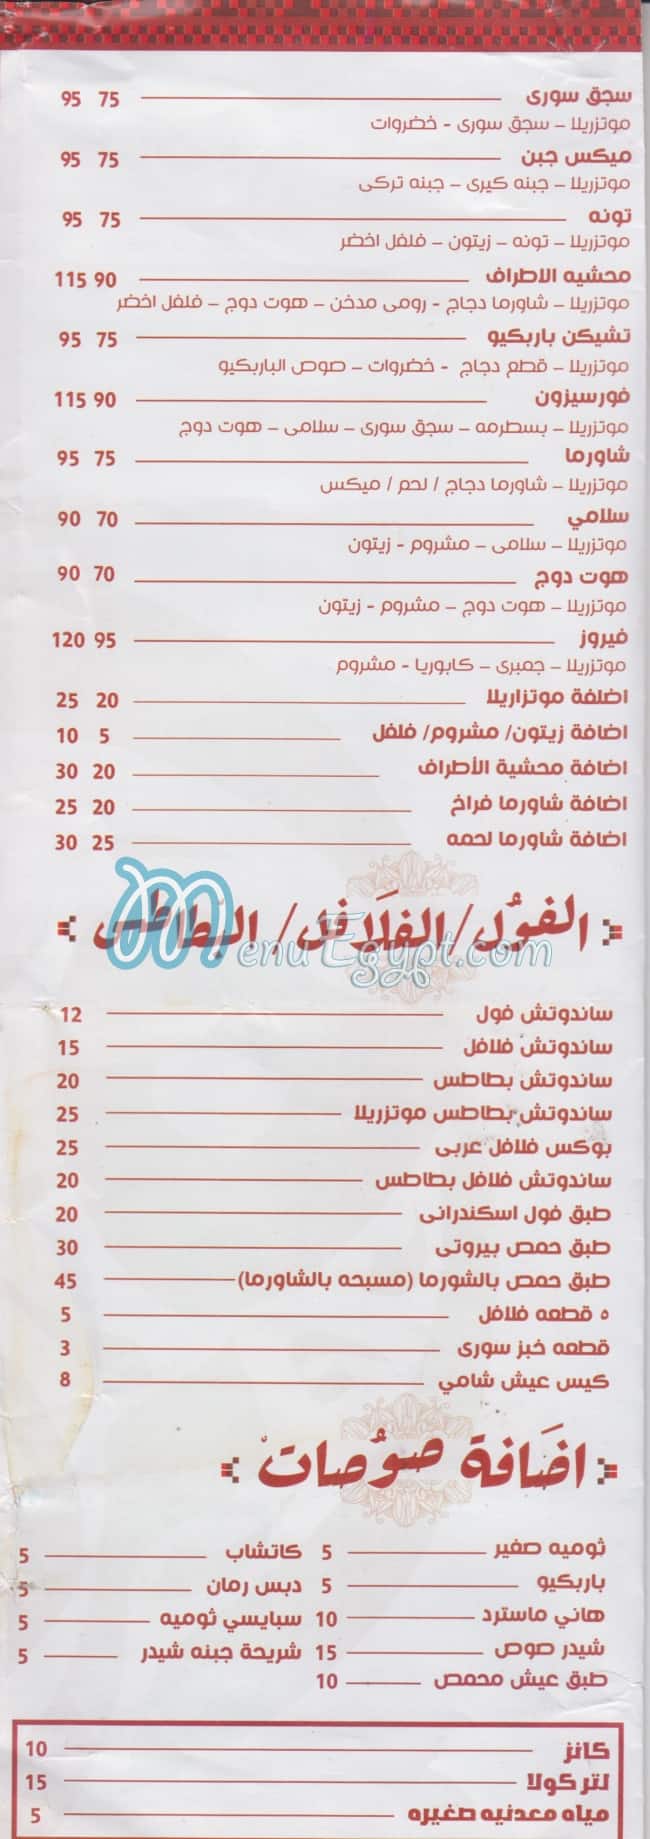 سجق سورى 75 95
موتزريلا – سجق سورى - خضروات
ميكس جبن 75 95
موتزريلا – جبنه كيرى – جبنه تركى
تونه 75 95
موتزريلا – تونه – زيتون – فلفل اخضر
محشيه الاطراف 90 115
موتزريلا – شاورما دجاج - رومى مدخن – هوت دوج – فلفل اخضر
تشيكن باربكيو 75 95
موتزريلا – قطع دجاج - خضروات – صوص الباربكيو
فورسيزون 90 115
موتزريلا – بسطرمه – سجق سورى – سلامى – هوت دوج
شاورما 75 95
موتزريلا – شاورما دجاج / لحم / ميكس
سلامي 70 90
موتزريلا – سلامى – مشروم - زيتون
هوت دوج 70 90
موتزريلا – هوت دوج – مشروم - زيتون
فيروز 95 120
موتزريلا – جمبرى – كابوريا - مشروم
اضلفة موتزاريلا 20 25
اضافة زيتون/ مشروم/ فلفل 5 10
اضافة محشية الأطراف 20 30
اضافة شاورما فراخ 20 25
اضافة شاورما لحمه 25 30
الفول/الفلافل/البطاطس
MenuEgypt.com
ساندوتش فول 12
ساندوتش فلافل 15
ساندوتش بطاطس 20
ساندوتش بطاطس موتزريلا 25
بوكس فلافل عربى 25
ساندوتش فلافل بطاطس 20
طبق فول اسكندرانى 20
طبق حمص بيروتى 30
طبق حمص بالشورما (مسبحه بالشاورما) 45
٥ قطعه فلافل 5
قطعه خبز سورى 3
كيس عيش شامي 8
اضَافة صوُصات
ثوميه صغير 5 كاتشاب 5
باربكيو 5 دبس رمان 5
هاني ماسترد 10 سبايسي ثوميه 5
شيدر صوص 15 شريحة جبنه شيدر 5
طبق عيش محمص 10
كانز 10
لتر كولا 15
مياه معدنيه صغيره 5